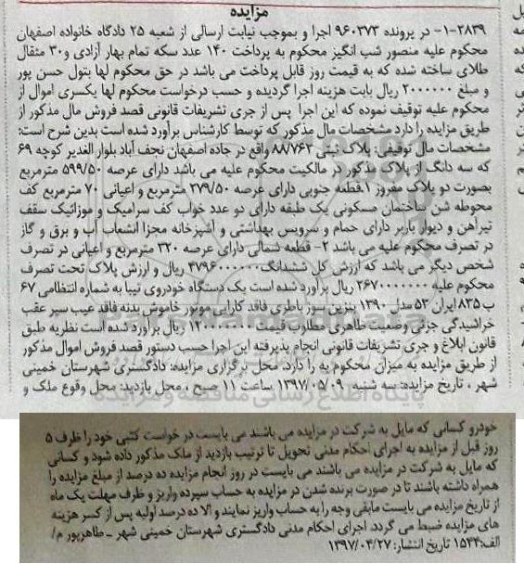 مزایده
۱-۲۸۳۹- در پرونده ۹۶۰۳۷۳ اجرا و بموجب نیابت ارسالی از شعبه ۲۵ دادگاه خانواده اصفهان
محکوم علیه منصور شب انگیز محکوم به پرداخت ۱۴۰ عدد سکه تمام بهار آزادی و ۳۰ مثقال
طلای ساخته شده که به قیمت روز قابل پرداخت می باشد در حق محکوم لها بتول حسن پور
و مبلغ ۲۰۰۰۰۰۰ ریال بابت هزینه اجرا گردیده و حسب درخواست محکوم لها یکسری اموال از
محکوم علیه توقیف نموده که این اجرا پس از جری تشریفات قانونی قصد فروش مال مذکور از
طریق مزایده را دارد مشخصات مال مذکور که توسط کارشناس برآورد شده است بدین شرح است:
مشخصات مال توقیفی: پلاک ثبتی ۸۸/۷۶۲ واقع در جاده اصفهان نجف آباد بلوار الغدیر کوچه ۶۹
که سه دانگ از پلاک مذکور در مالکیت محکوم علیه می باشد دارای عرصه ۵۹۹/۵۰ مترمربع
بصورت دو پلاک مفروز ۱.قطعه جنوبی دارای عرصه ۲۷۹/۵۰ مترمربع و اعیانی ۷۰ مترمربع کف
محوطه شن ساختمان مسکونی یک طبقه دارای دو عدد خواب کف سرامیک و موزائیک سقف
تیرآهن و دیوار باربر دارای حمام و سرویس بهداشتی و آشپزخانه مجزا انشعاب آب و برق و گاز
در تصرف محکوم علیه می باشد ۲- قطعه شمالی دارای عرصه ۳۲۰ مترمربع و اعیانی در تصرف
شخص دیگر می باشد که ارزش کل ششدانگ ۴۷۹۶۰۰۰۰۰۰ ریال و ارزش پلاک تحت تصرف
محکوم علیه ۲۶۷۰۰۰۰۰۰۰ ریال برآورد شده است یک دستگاه خودروی تیبا به شماره انتظامی ۶۷
ب ۸۳۵ ایران ۵۳ مدل ۱۳۹۰ بنزین سوز باطری فاقد کارایی موتور خاموش بدنه فاقد عیب سپر عقب
خراشیدگی جزئی وضعیت ظاهری مطلوب قیمت ۱۲۰۰۰۰۰۰۰ ریال برآورد شده است نظریه طبق
قانون ابلاغ و جری تشریفات قانونی انجام پذیرفته این اجرا حسب دستور قصد فروش اموال مذکور
از طریق مزایده به میزان محکوم به را دارد. محل برگزاری مزایده: دادگستری شهرستان خمینی
شهر ، تاریخ مزایده: سه شنبه ۱۳۹۷/۰۵/۰۹ ساعت ۱۱ صبح ، محل بازدید: محل وقوع ملک و
خودرو کسانی که مایل به شرکت در مزایده می باشند می بایست درخواست کتبی خود را ظرف ۵
روز قبل از مزایده به اجرای احکام مدنی تحویل تا ترتیب بازدید از ملک مذکور داده شود و کسانی
که مایل به شرکت در مزایده می باشند می بایست در روز انجام مزایده ده درصد از مبلغ مزایده را
همراه داشته باشند تا در صورت برنده شدن در مزایده به حساب سپرده واریز و ظرف مهلت یک ماه
از تاریخ مزایده می بایست مابقی وجه را به حساب واریز نمایند و الا ده درصد اولیه پس از کسر هزینه
های مزایده ضبط می گردد. اجرای احکام مدنی دادگستری شهرستان خمینی شهر - طاهرپور م/
الف:۱۵۳۴ تاریخ انتشار: ۱۳۹۷/۰۴/۲۷